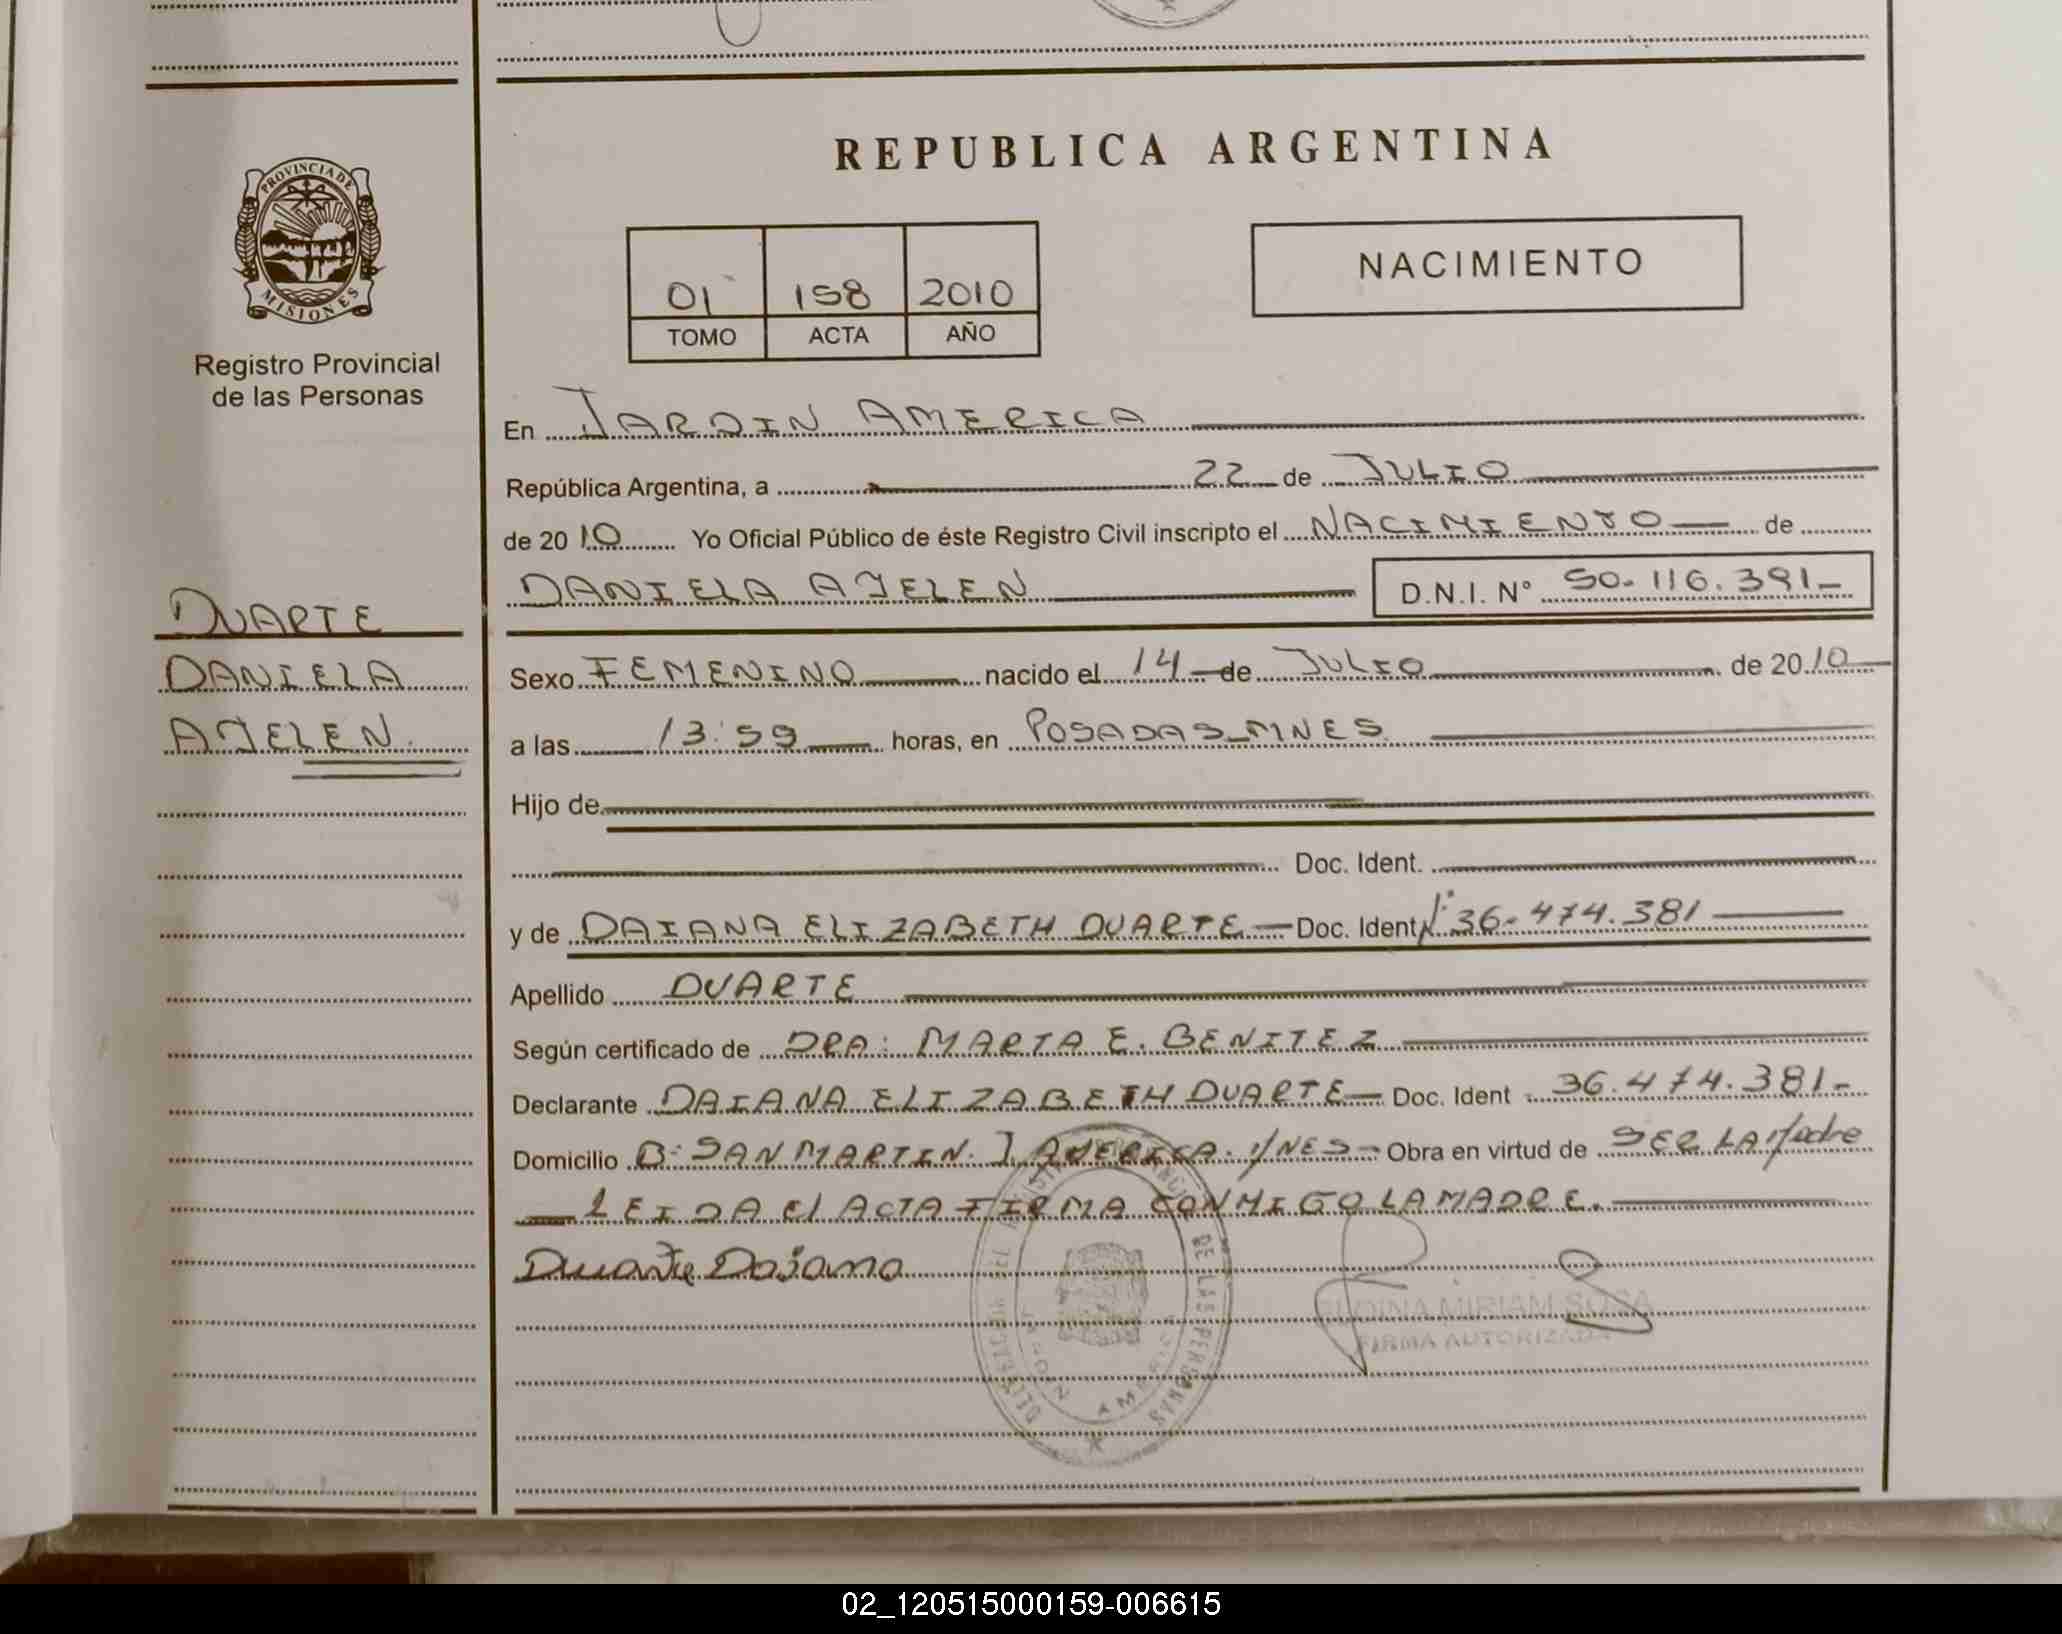 REPUBLICA ARGENTINA
PROVINCIA DE
MISIONES
Registro Provincial
de las Personas
NACIMIENTO
01 158 2010
TOMO ACTA AÑO
En JARDIN AMERICA
República Argentina, a 22 de JULIO
de 2010 Yo Oficial Público de éste Registro Civil inscripto el NACIMIENTO de
DANIELA AJELEN D.N.I. N° 50.116.391-
DUARTE
DANIELA
AJELEN.
Sexo FEMENINO nacido el 14 de JULIO de 2010
a las 13:59 horas, en POSADAS_MNES
Hijo de
y Doc. Ident.
y de DAIANA ELIZABETH DUARTE Doc. Ident N° 36.474.381
Apellido DUARTE
Según certificado de DRA: MARTA E. BENITEZ
Declarante DAIANA ELIZABETH DUARTE Doc. Ident 36.474.381-
Domicilio B: SAN MARTIN. J. AMERICA. MNES Obra en virtud de SER LA Madre
LEIDA El ACTA FIRMA CONMIGO LA MADRE.
Duarte Daiana
DE LAS PERSONAS
JARDIN AMERICA
MIRIAM SOSA
FIRMA AUTORIZADA
02_120515000159-006615